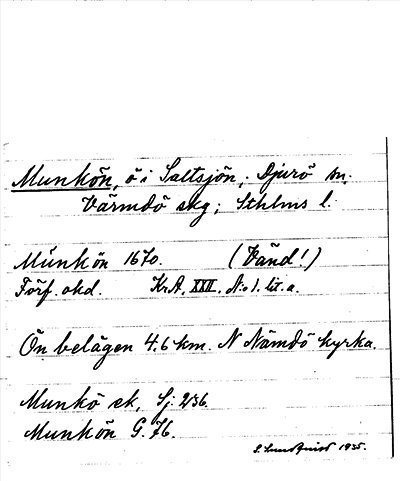 Munkön, ö i Saltsjön; Djurö sn;
Värmdö skg; Sthlms l.
Munkön 1670. (Vänd!)
Förf. okd. Kr.A, XXII, No 1. lit. a.
Ön belägen 4.6 km. N Nämdö kyrka.
Munkö ek, Sj: 236.
Munkön G. 76.
S. Lundquist 1935.